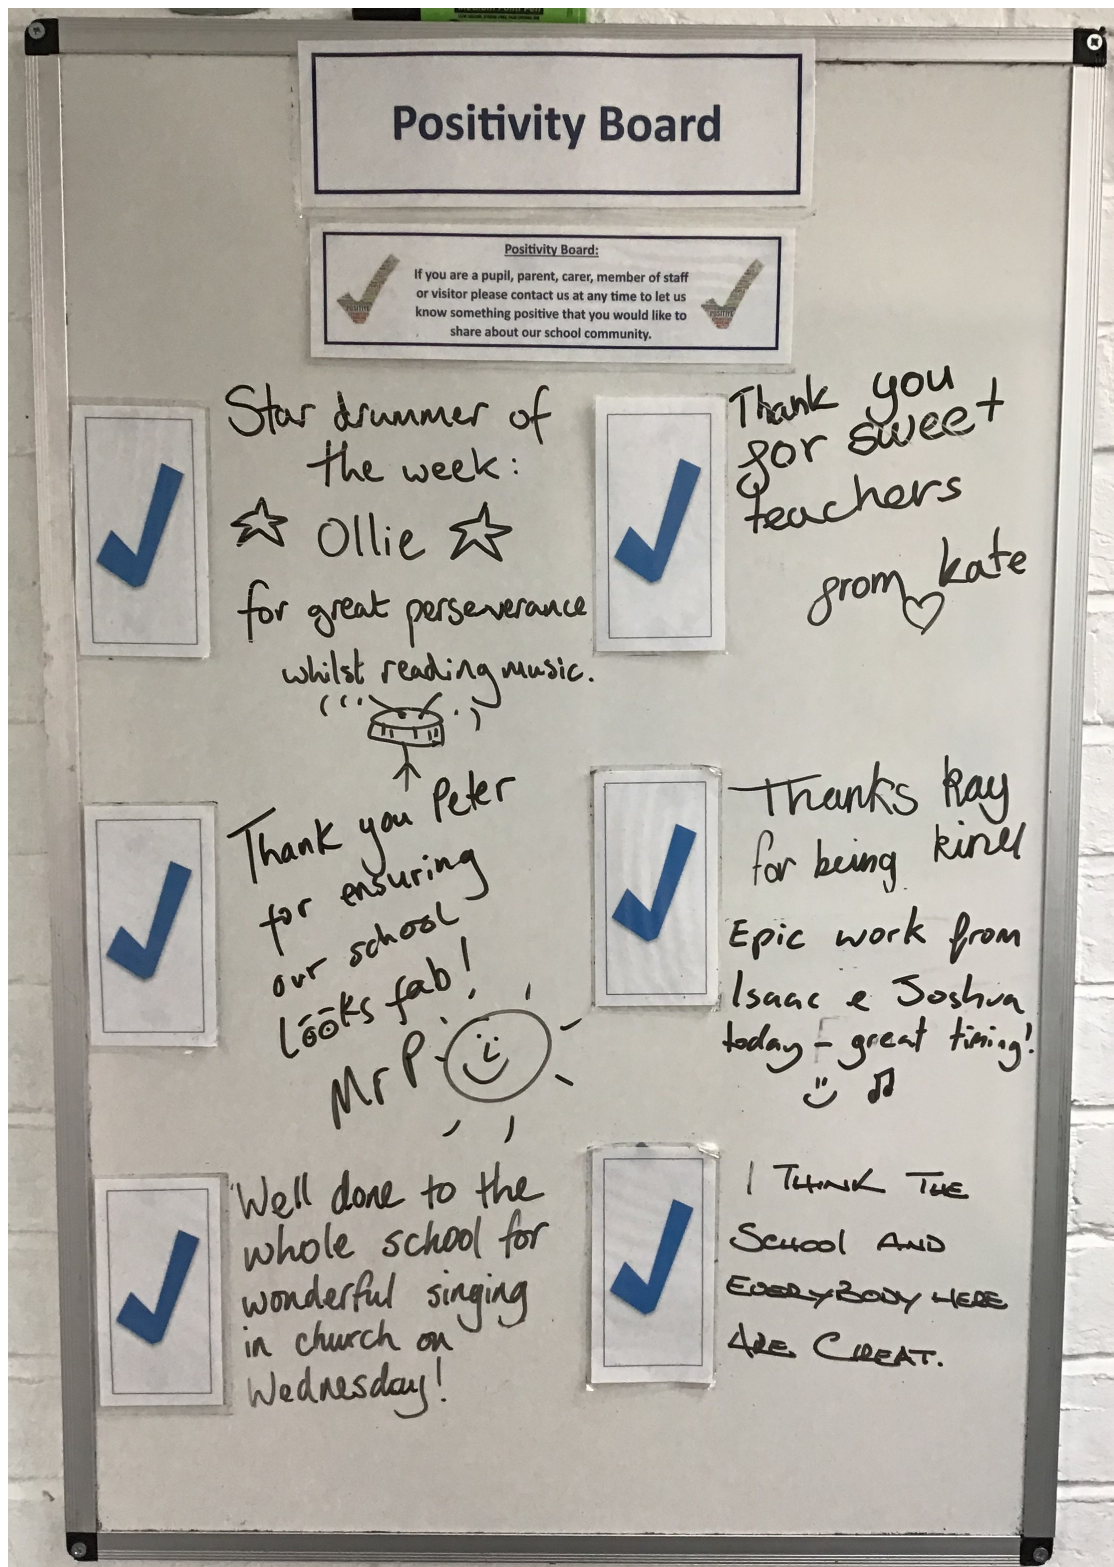 Positivity Board
Positivity Board:
If you are a pupil, parent, carer, member of staff
or visitor please contact us at any time to let us
know something positive that you would like to
share about our school community.
Star drummer of
the week:
Ollie
for great perseverance
whilst reading music.
Thank you
for sweet
teachers
from kate
Thank you Peter
for ensuring
our school
looks fab!
Mr P.
Thanks Kay
for being kind
Epic work from
Isaac & Joshua
today - great timing!
Well done to the
whole school for
wonderful singing
in church on
Wednesday!
I THINK THE
SCHOOL AND
EVERYBODY HERE
ARE GREAT.